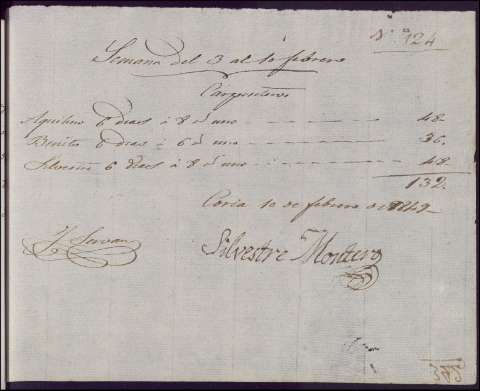 N.º 124
Semana del 3 al 10 febrero
Carpinteros
Aquilino 6 dias á 8 rs uno 48.
Benito 6 dias á 6 rs uno 36.
Silvestre 6 dias á 8 rs uno 48
132.
Coria 10 de febrero de 1849
Servan Silvestre Montero